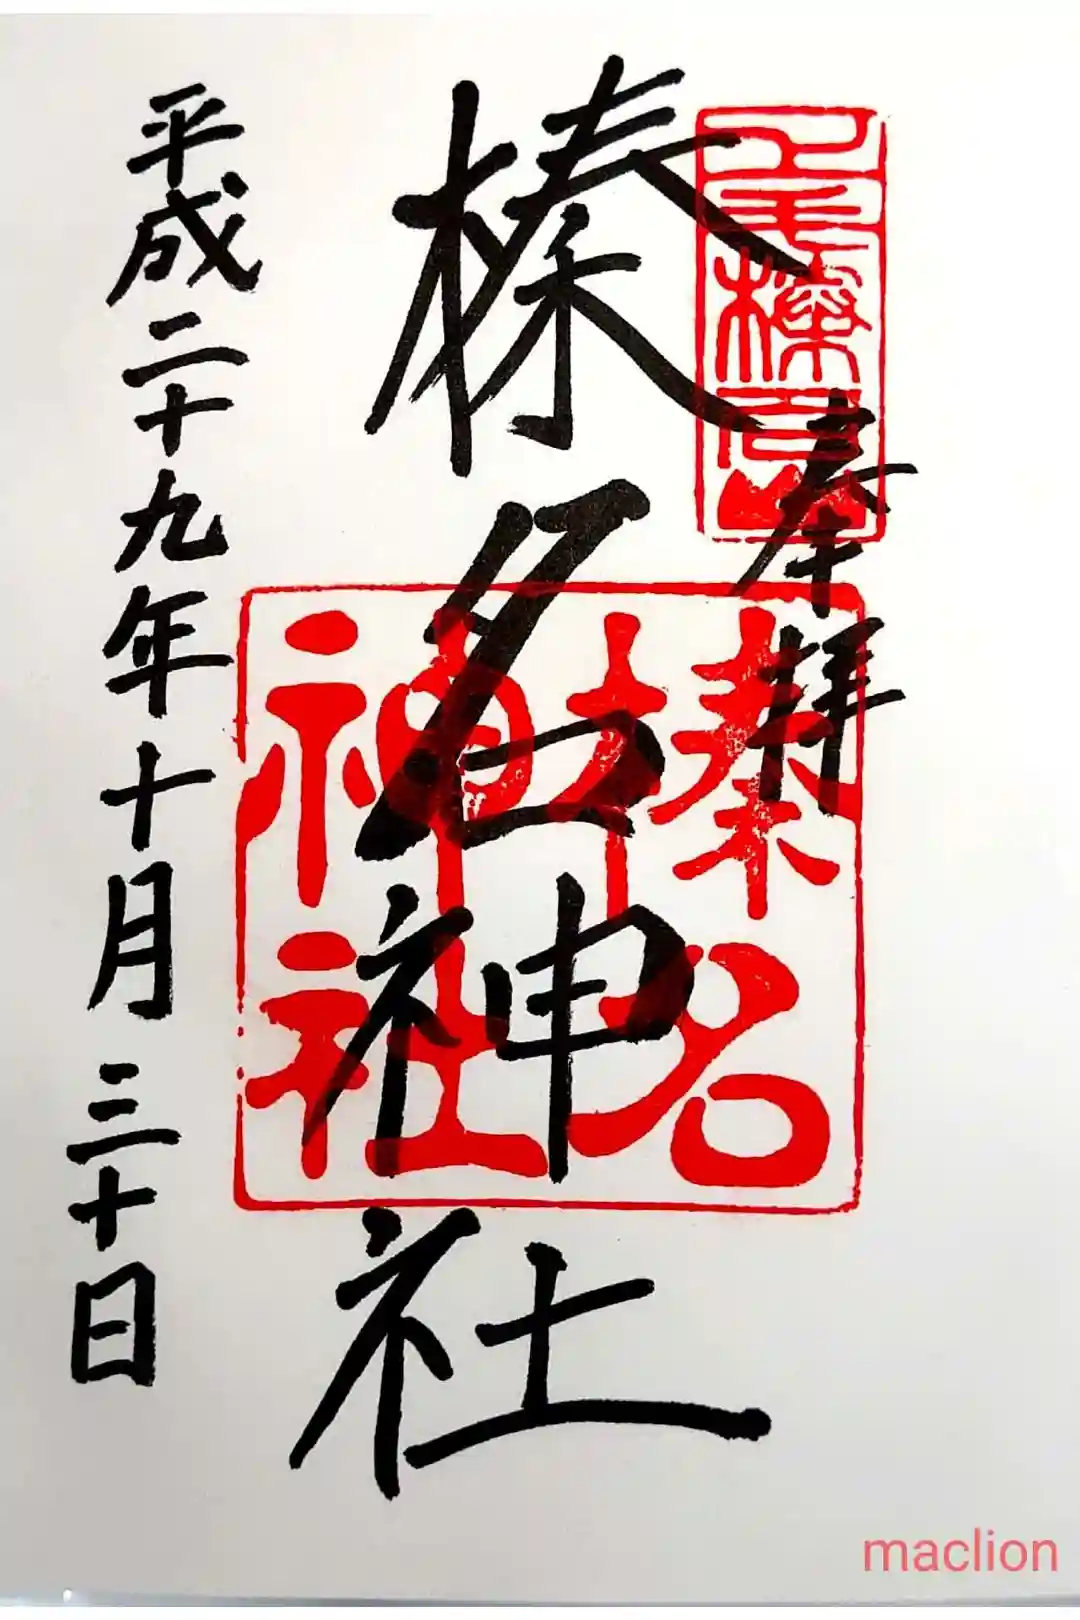 奉拝
榛名神社
榛名神社
平成二十九年十月三十日
maclion